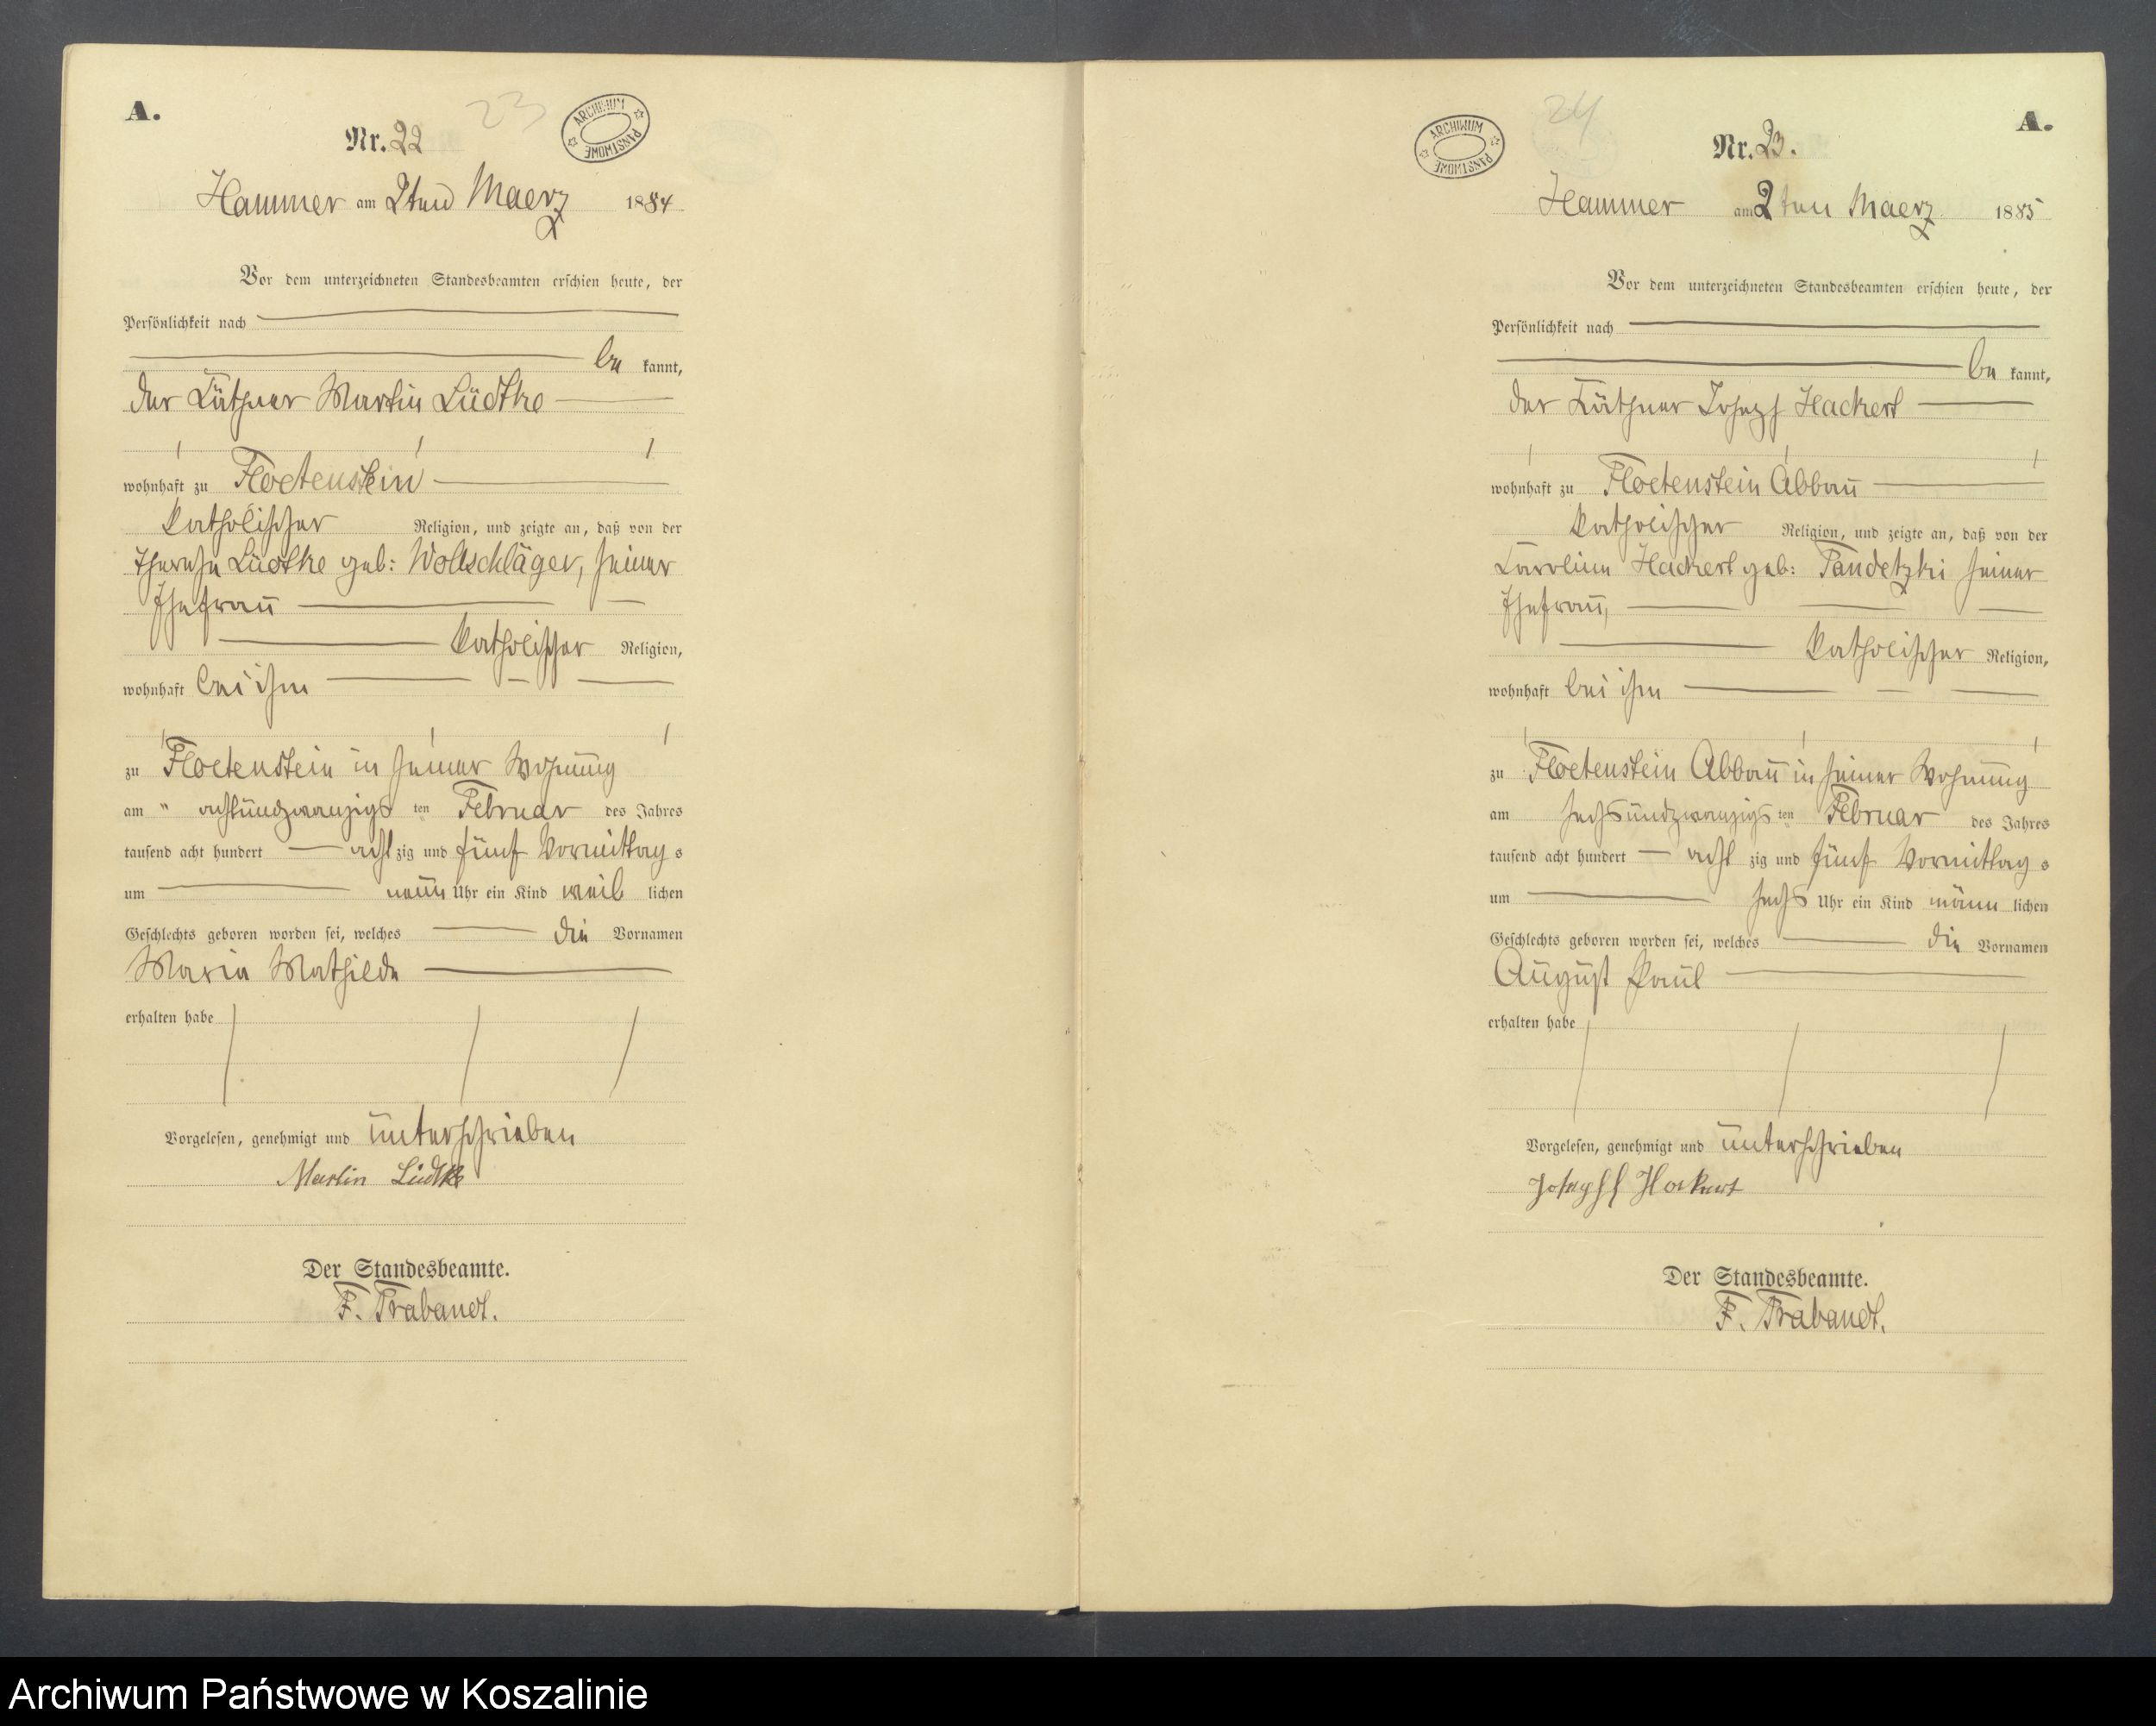 A.
23
ARCHIWUM PAŃSTWOWE
Nr. 22
Hammer am 2ten Maerz 1884
Vor dem unterzeichneten Standesbeamten erschien heute, der
Persönlichkeit nach
be kannt,
der Käthner Martin Lüdtke
wohnhaft zu Floetenstein
katholischer Religion, und zeigte an, daß von der
Therese Lüdtke geb: Wollschläger, seiner
Ehefrau
katholischer Religion,
wohnhaft bei ihm
zu Floetenstein in seiner Wohnung
am " achtundzwanzigs ten Februar des Jahres
tausend acht hundert acht zig und fünf Vormittag s
um neun Uhr ein Kind weib lichen
Geschlechts geboren worden sei, welches die Vornamen
Maria Mathilde
erhalten habe
Vorgelesen, genehmigt und unterschrieben
Martin Lüdtke
Der Standesbeamte.
F. Trabandt.
A.
24
ARCHIWUM PAŃSTWOWE
Nr. 23.
Hammer am 2ten Maerz 1885
Vor dem unterzeichneten Standesbeamten erschien heute, der
Persönlichkeit nach
be kannt,
der Käthner Joseph Hackert
wohnhaft zu Floetenstein Abbau
katholischer Religion, und zeigte an, daß von der
Caroline Hackert geb: Pandetzki seiner
Ehefrau,
katholischer Religion,
wohnhaft bei ihm
zu Floetenstein Abbau in seiner Wohnung
am sechsundzwanzigs ten Februar des Jahres
tausend acht hundert acht zig und fünf Vormittag s
um sechs Uhr ein Kind männ lichen
Geschlechts geboren worden sei, welches die Vornamen
August Paul
erhalten habe
Vorgelesen, genehmigt und unterschrieben
Joseph Hackert
Der Standesbeamte.
F. Trabandt.
Archiwum Państwowe w Koszalinie